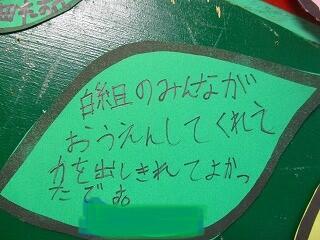 白組のみんなが
おうえんしてくれて
力を出しきれてよかっ
たです。